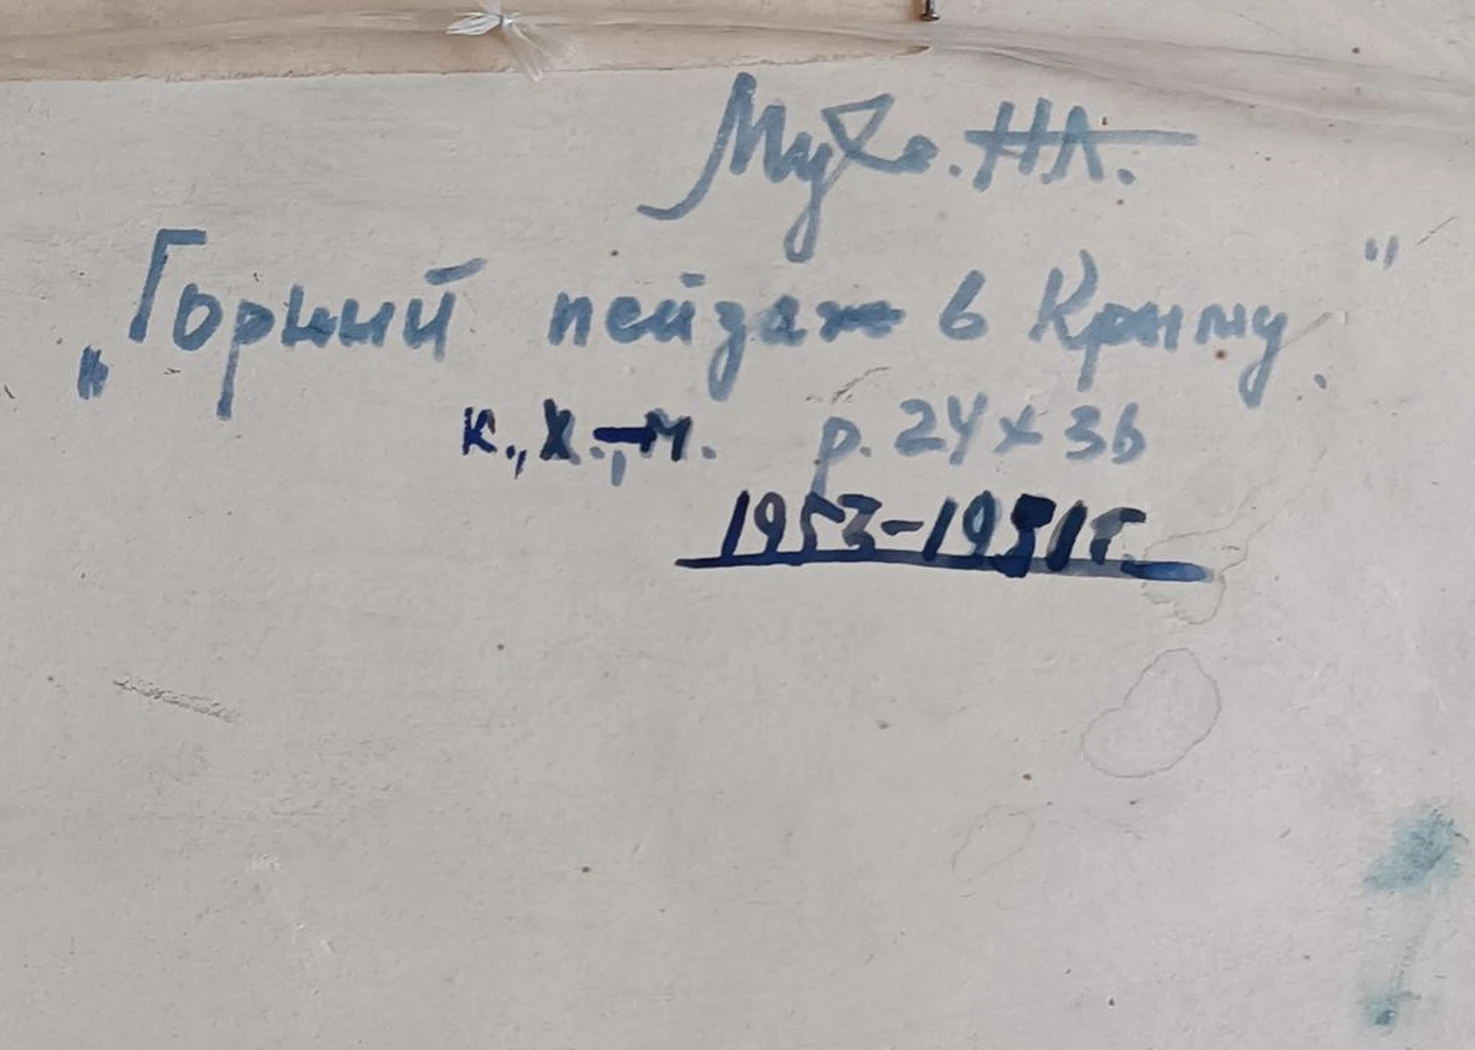 Муха. Н.А.
„Горный пейзаж в Крыму."
к., х.-м. р. 24 х 36
1953-1951г.